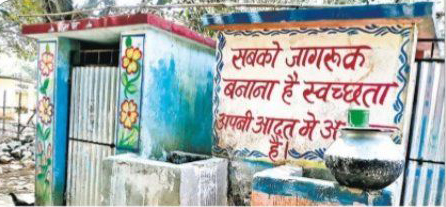 सबको जागरूक
बनाना है स्वच्छता
अपनी आदत मे
है।